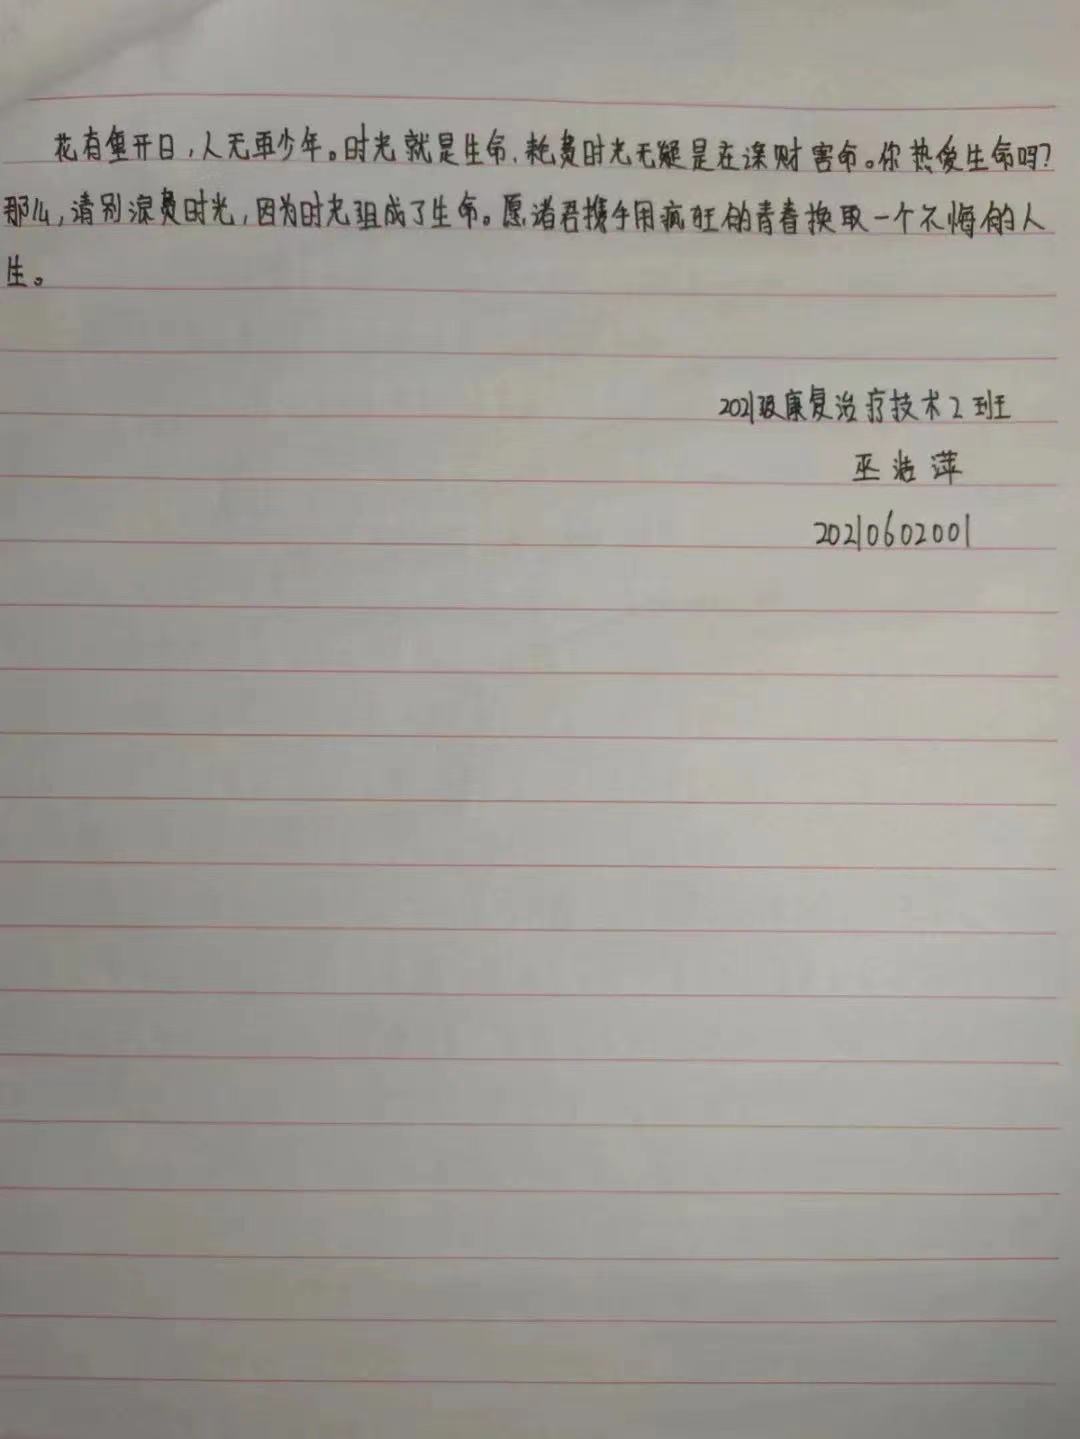 花有重开日，人无再少年。时光就是生命，耗费时光无疑是在谋财害命。你热爱生命吗？
那么，请别浪费时光，因为时光组成了生命。愿诸君携手用疯狂的青春换取一个不悔的人
生。
2021级康复治疗技术2班
巫洁萍
20210602001